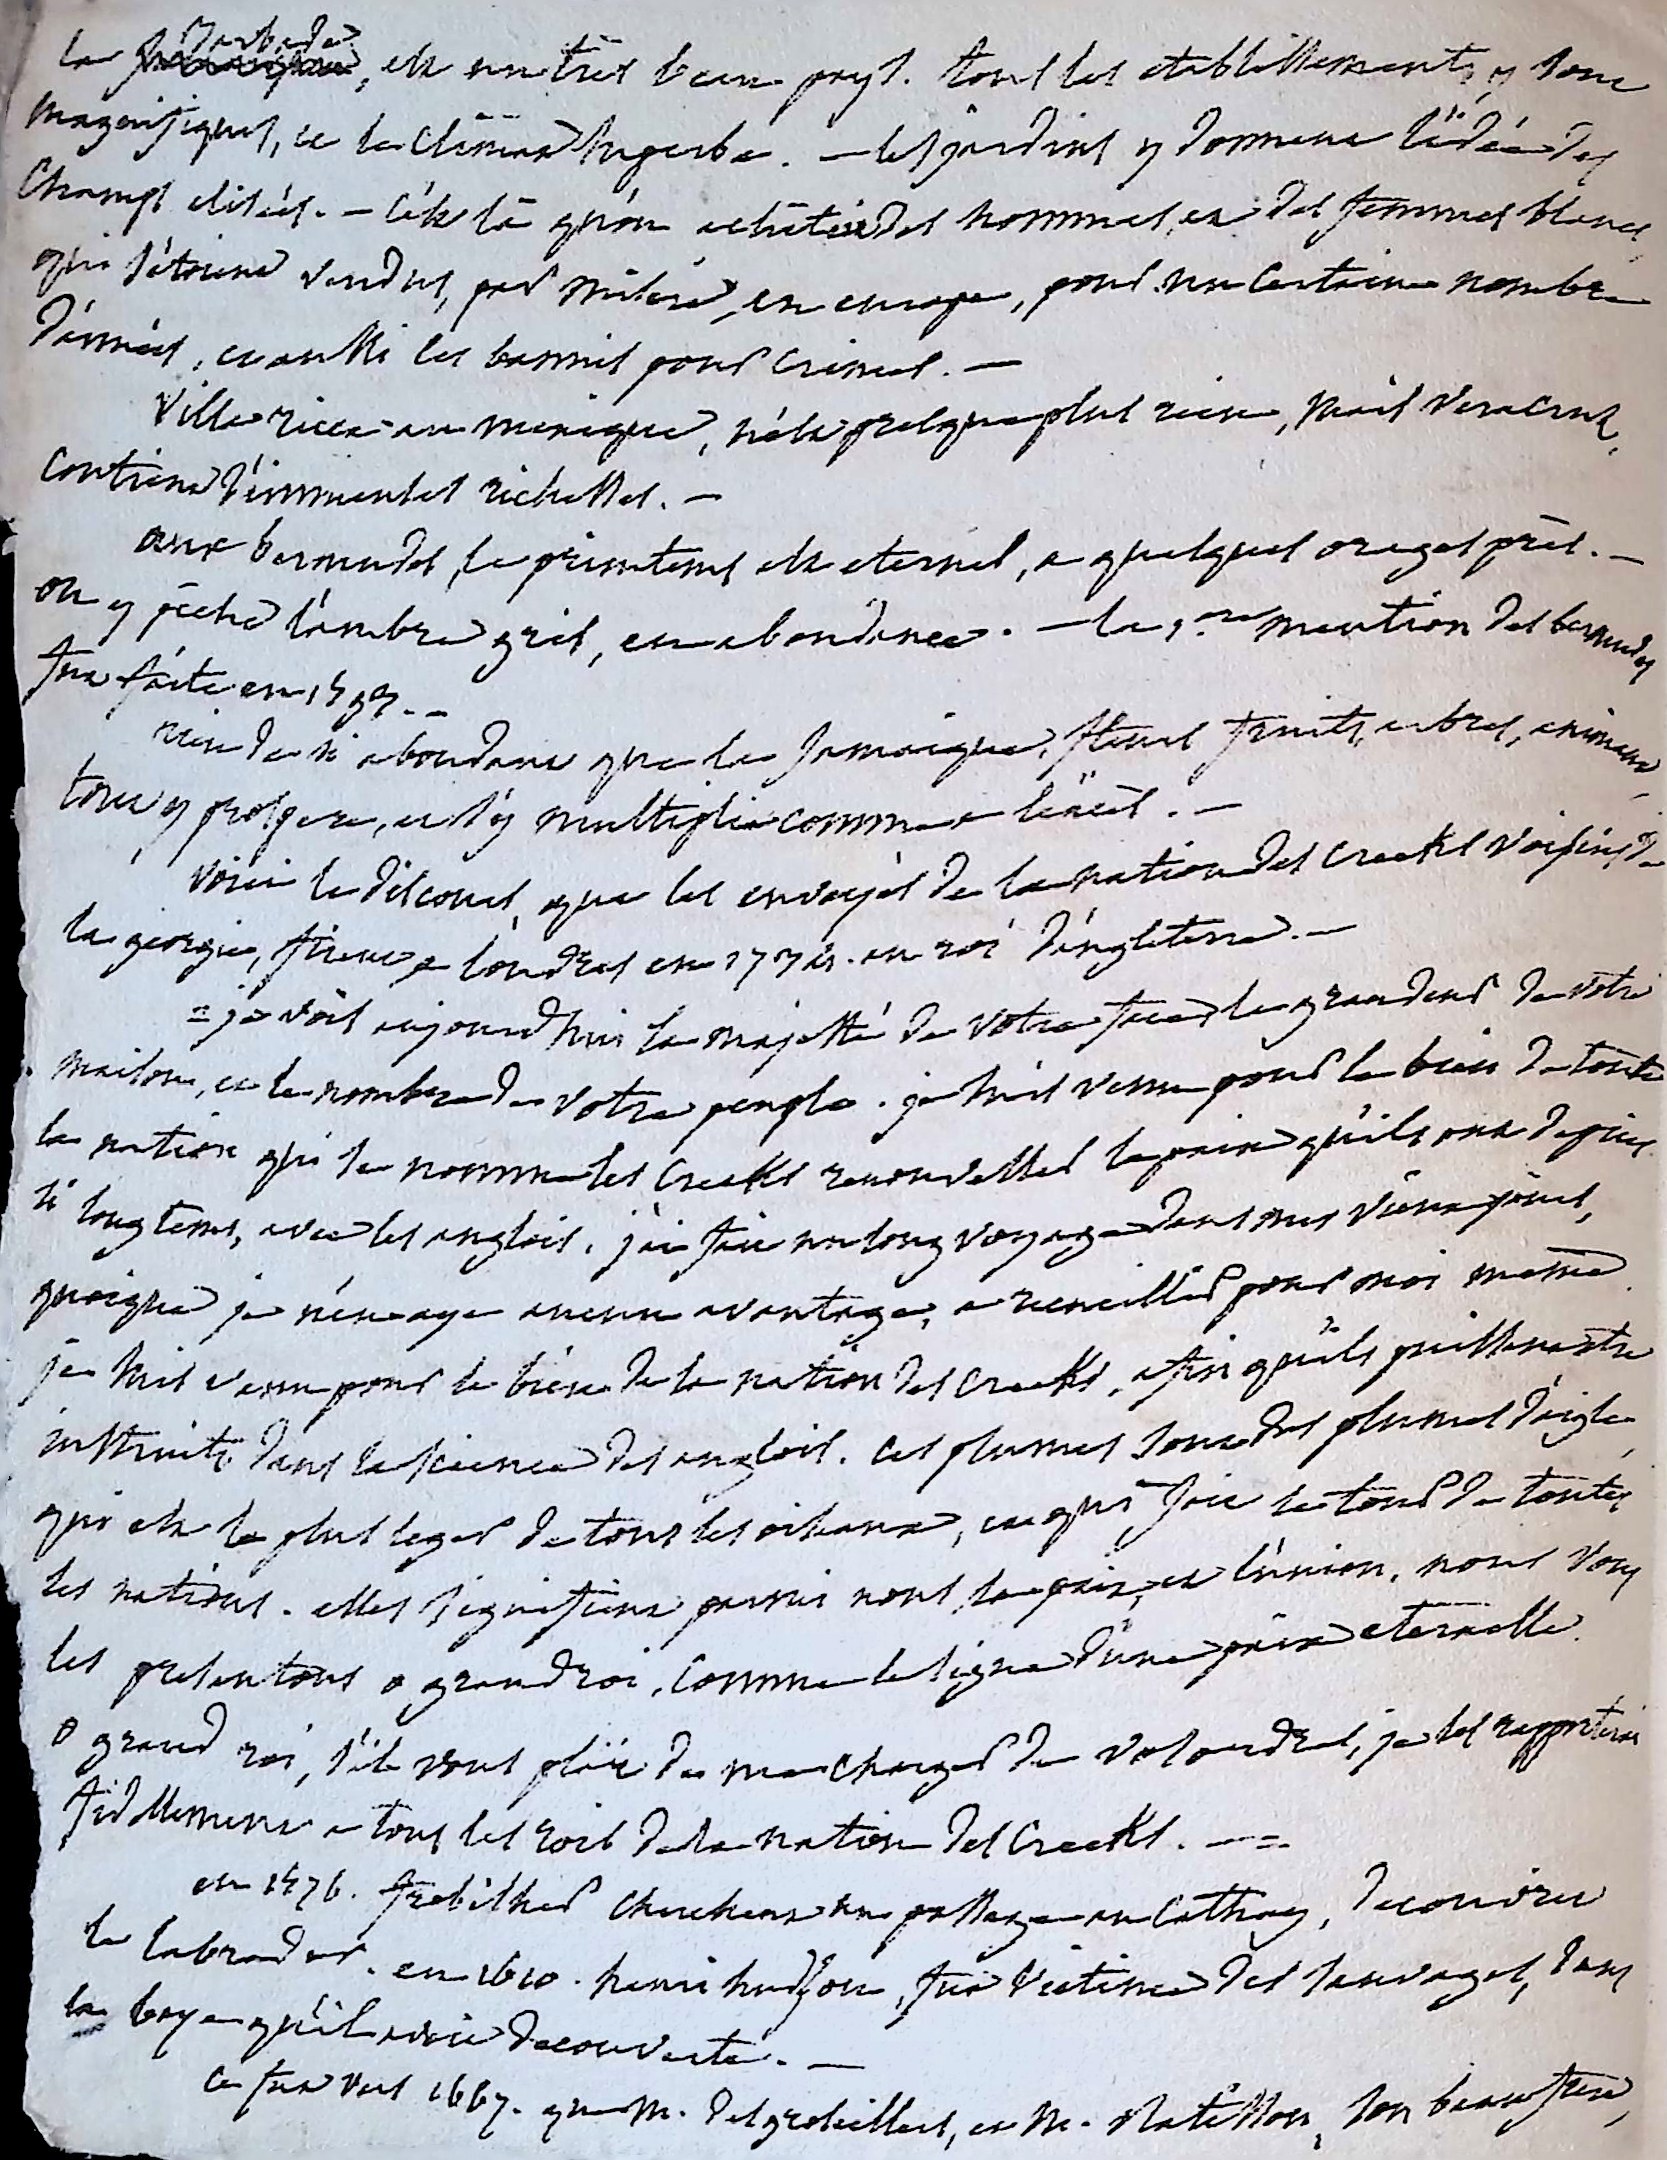 la Barbade, est un très beau pays. tous les etablissements y sont
magnifiques, et le climat superbe. — les jardins y donnent l'idée des
Champs elisées. — c'est là qu'on achetoit des hommes, et des femmes blancs,
qui s'étoient vendus, par misère, en europe, pour un certain nombre
d'années, et aussi les bannis pour crimes. —
Ville ricca au mexique, n'est presque plus rien, mais Vera Crux,
contient d'immenses richesses. —
aux bermudes, le printems est eternel, a quelques orages près. —
on y pêche l'ambre gris, en abondance. — la 1ere mention des bermudes
fut faite en 1593. —
rien de si abondant que la Jamaique, fleurs fruits, arbres, animaux,
tout y prospere, et s'y multiplie comme a
voici le discours, que les envoyés de la nation des Creeks voisins de
la georgie, firent a londres en 1734. au roi d'angleterre. —
= je vois aujourd'hui la majesté de votre face, la grandeur de votre
maison, et le nombre de votre peuple. je suis venu pour le bien de toute
la nation qui se nomme les Creeks renouveller la paix qu'ils ont depuis
si long tems, avec les anglois. j'ai fait un long voyage dans mes vieux jours,
quoique je n'en aye aucun avantage, a recueillir pour moi même.
je suis venu pour le bien de la nation des Creeks, afin qu'ils puissent être
instruits dans la science des anglois. ces plumes sont des plumes d'aigle,
qui est le plus leger de tous les oiseaux, et qui fait le tour de toutes
les nations. elles signifient parmi nous, la paix, et l'union. nous vous
les presentons o grand roi, comme le signe d'une paix eternelle.
o grand roi, s'il vous plait de me charger de vos ordres, je les rapporterai
fidellement a tous les rois de la nation des Creeks. — =
en 1576. frobisher cherchant un passage au Cathay, decouvrit
le labrador. en 1610. henri hudson, fut victime des sauvages, dans
la baye qu'il avoit decouverte. —
ce fut vers 1667. que M. desgroseillers, et M. son beau frere,